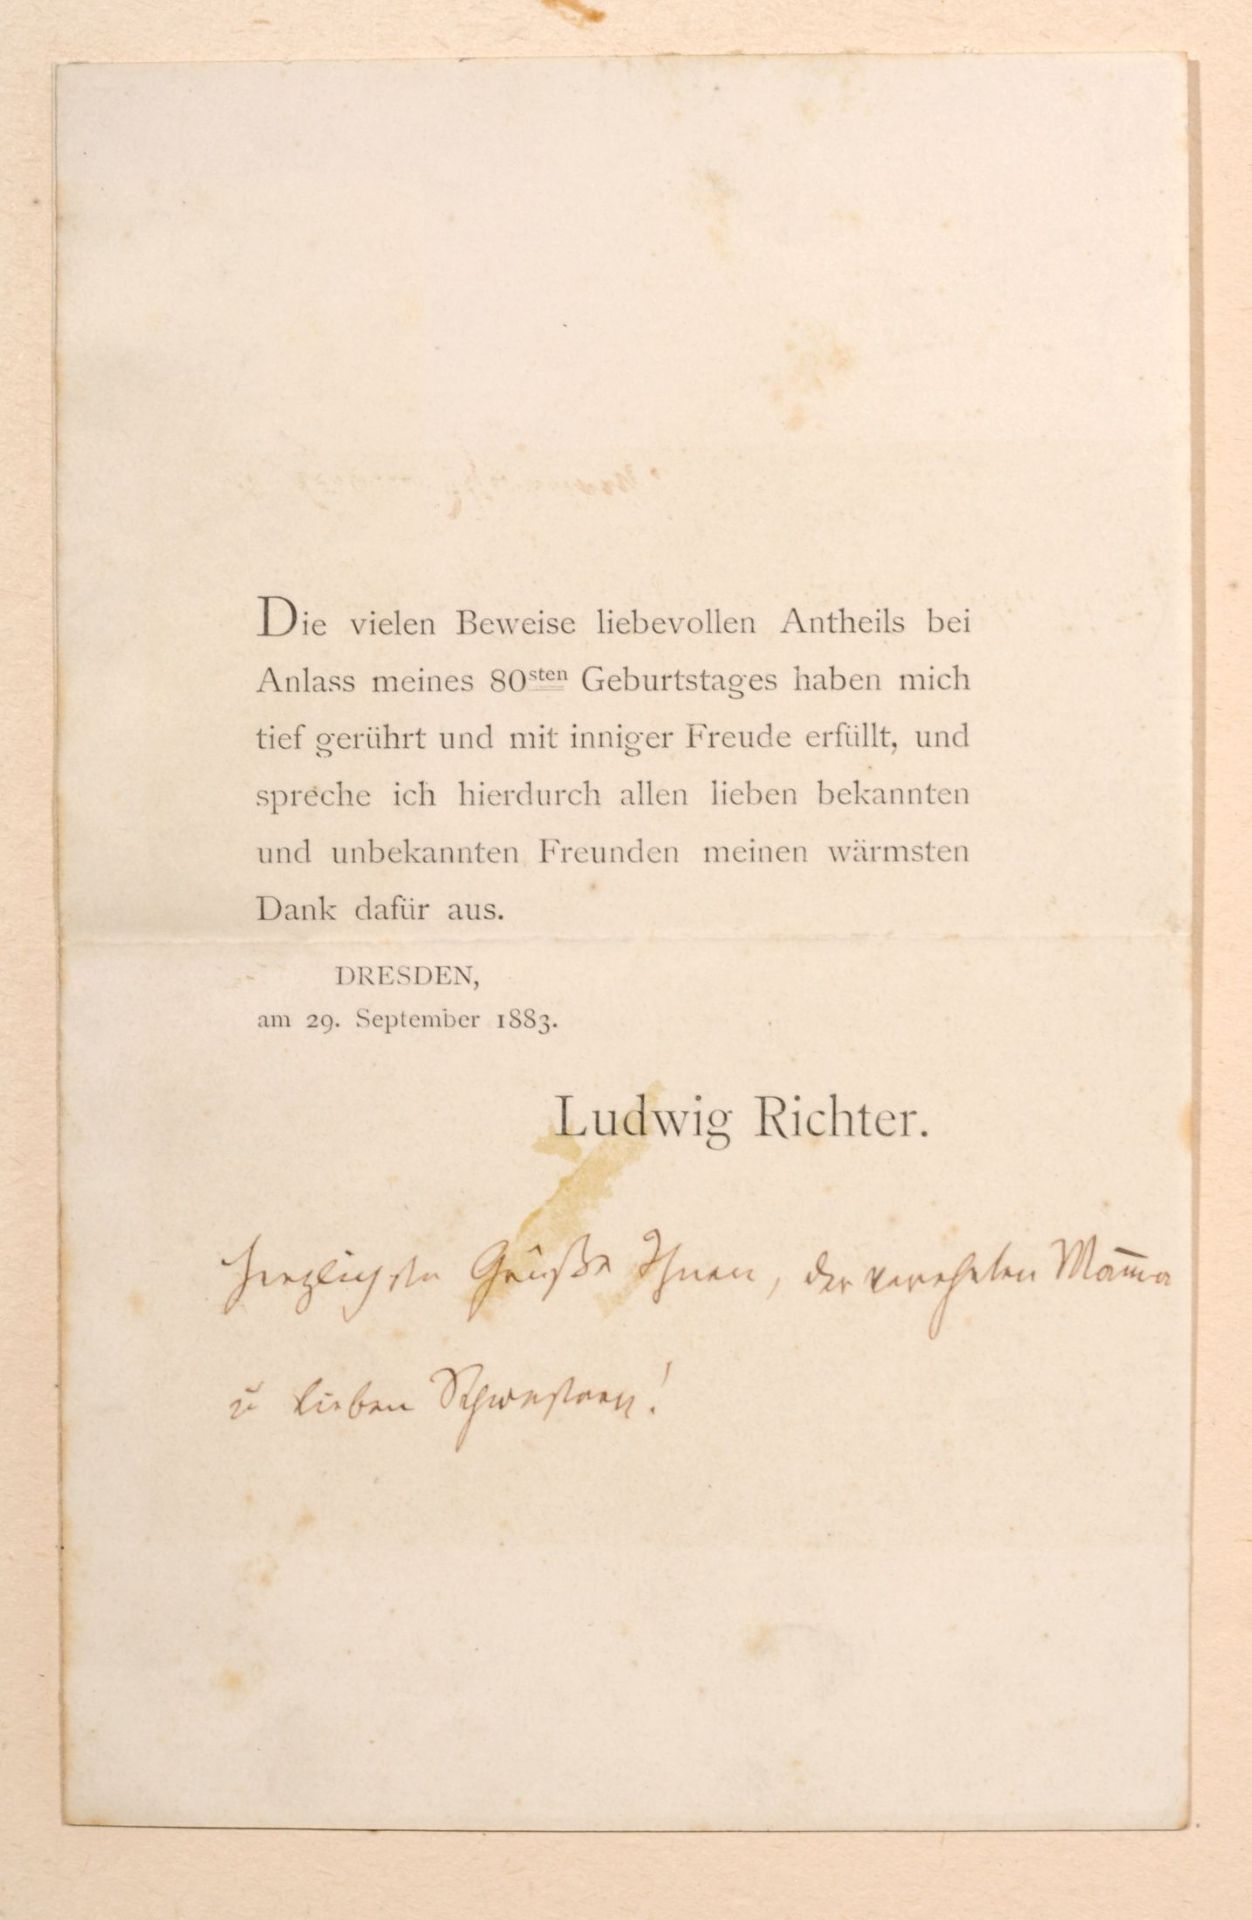 Die vielen Beweise liebevollen Antheils bei
Anlass meines 80sten Geburtstages haben mich
tief gerührt und mit inniger Freude erfüllt, und
spreche ich hierdurch allen lieben bekannten
und unbekannten Freunden meinen wärmsten
Dank dafür aus.
DRESDEN,
am 29. September 1883.
Ludwig Richter.
Herzlichste Grüße Ihnen, der verehrten Mam̄a
u lieben Schwestern!